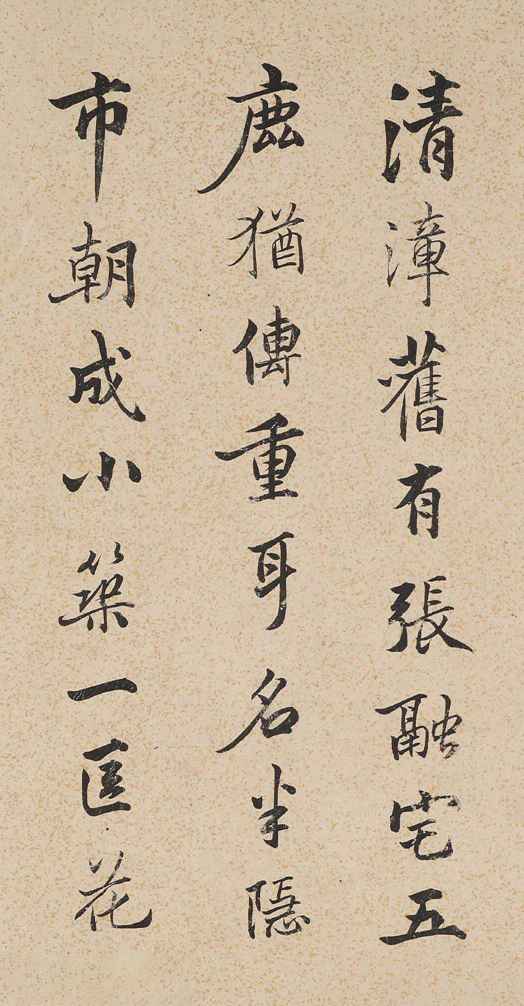 清漳舊有張融宅五
鹿猶傳重耳名半隱
市朝成小築一匡花